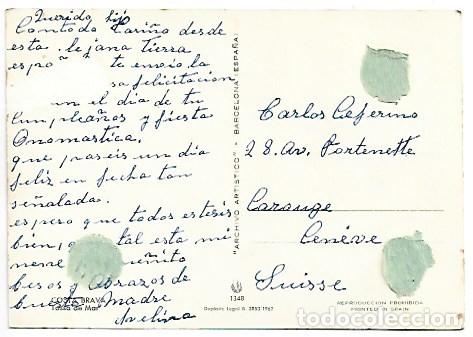 Querido hijo
Con todo Cariño desde
esta lejana Tierra
españ te envio la
sa felicitacion
en el dia de tu
Cumpleaños y fiesta
Onomastica.
que paseis un dia
feliz en fecha tan
señalada.
espero que todos esteis
bien, tal esta mi
nene
besos y abrazos de
tu Madre
Avelina
COSTA BRAVA
Tossa de Mar
"ARCHIVO ARTISTICO" - BARCELONA (ESPAÑA)
1348
Depósito Legal B. 3853-1967
Carlos Ceferino
28. Av. Portenette
Carouge
Cenéve
Suisse
REPRODUCCION PROHIBIDA
PRINTED IN SPAIN
todocoleccion